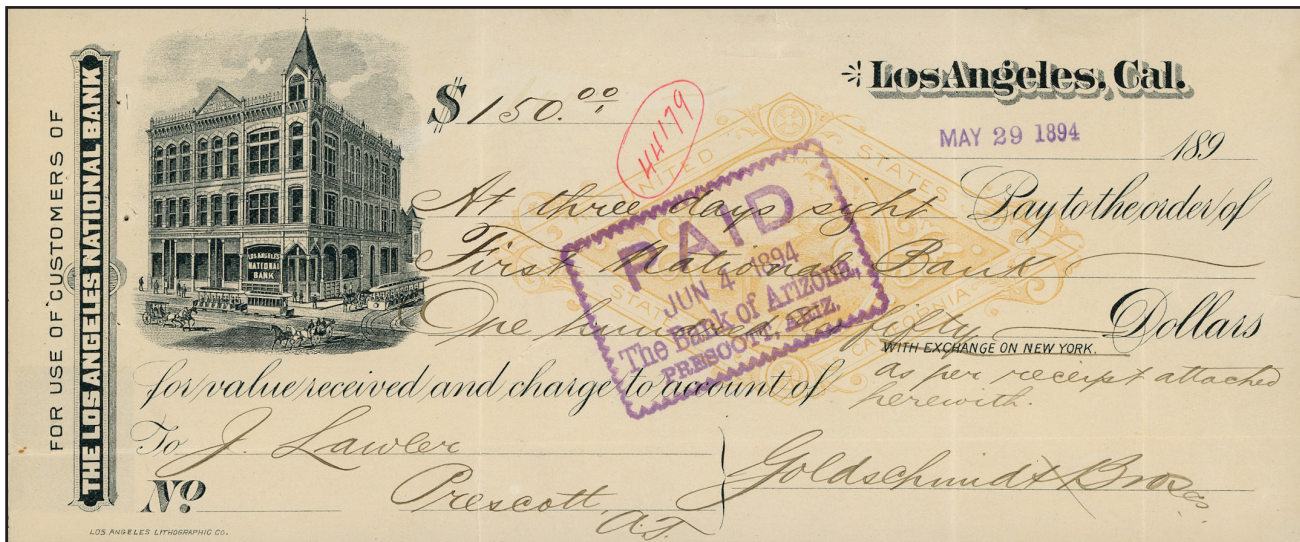 FOR USE OF CUSTOMERS OF
THE LOS ANGELES NATIONAL BANK
LOS ANGELES
NATIONAL
BANK
$150.00
44179
Los Angeles, Cal.
MAY 29 1894
189
UNITED STATES
At three days sight Pay to the order of
First National Bank
STATE CALIFORNIA
One hundred fifty Dollars
WITH EXCHANGE ON NEW YORK.
PAID
JUN 4 1894
The Bank of Arizona,
PRESCOTT, ARIZ.
for value received and charge to account of as per receipt attached
herewith.
To J. Lawler
Prescott,
A.T.
Goldschmidt Bros
No
LOS ANGELES LITHOGRAPHIC CO.